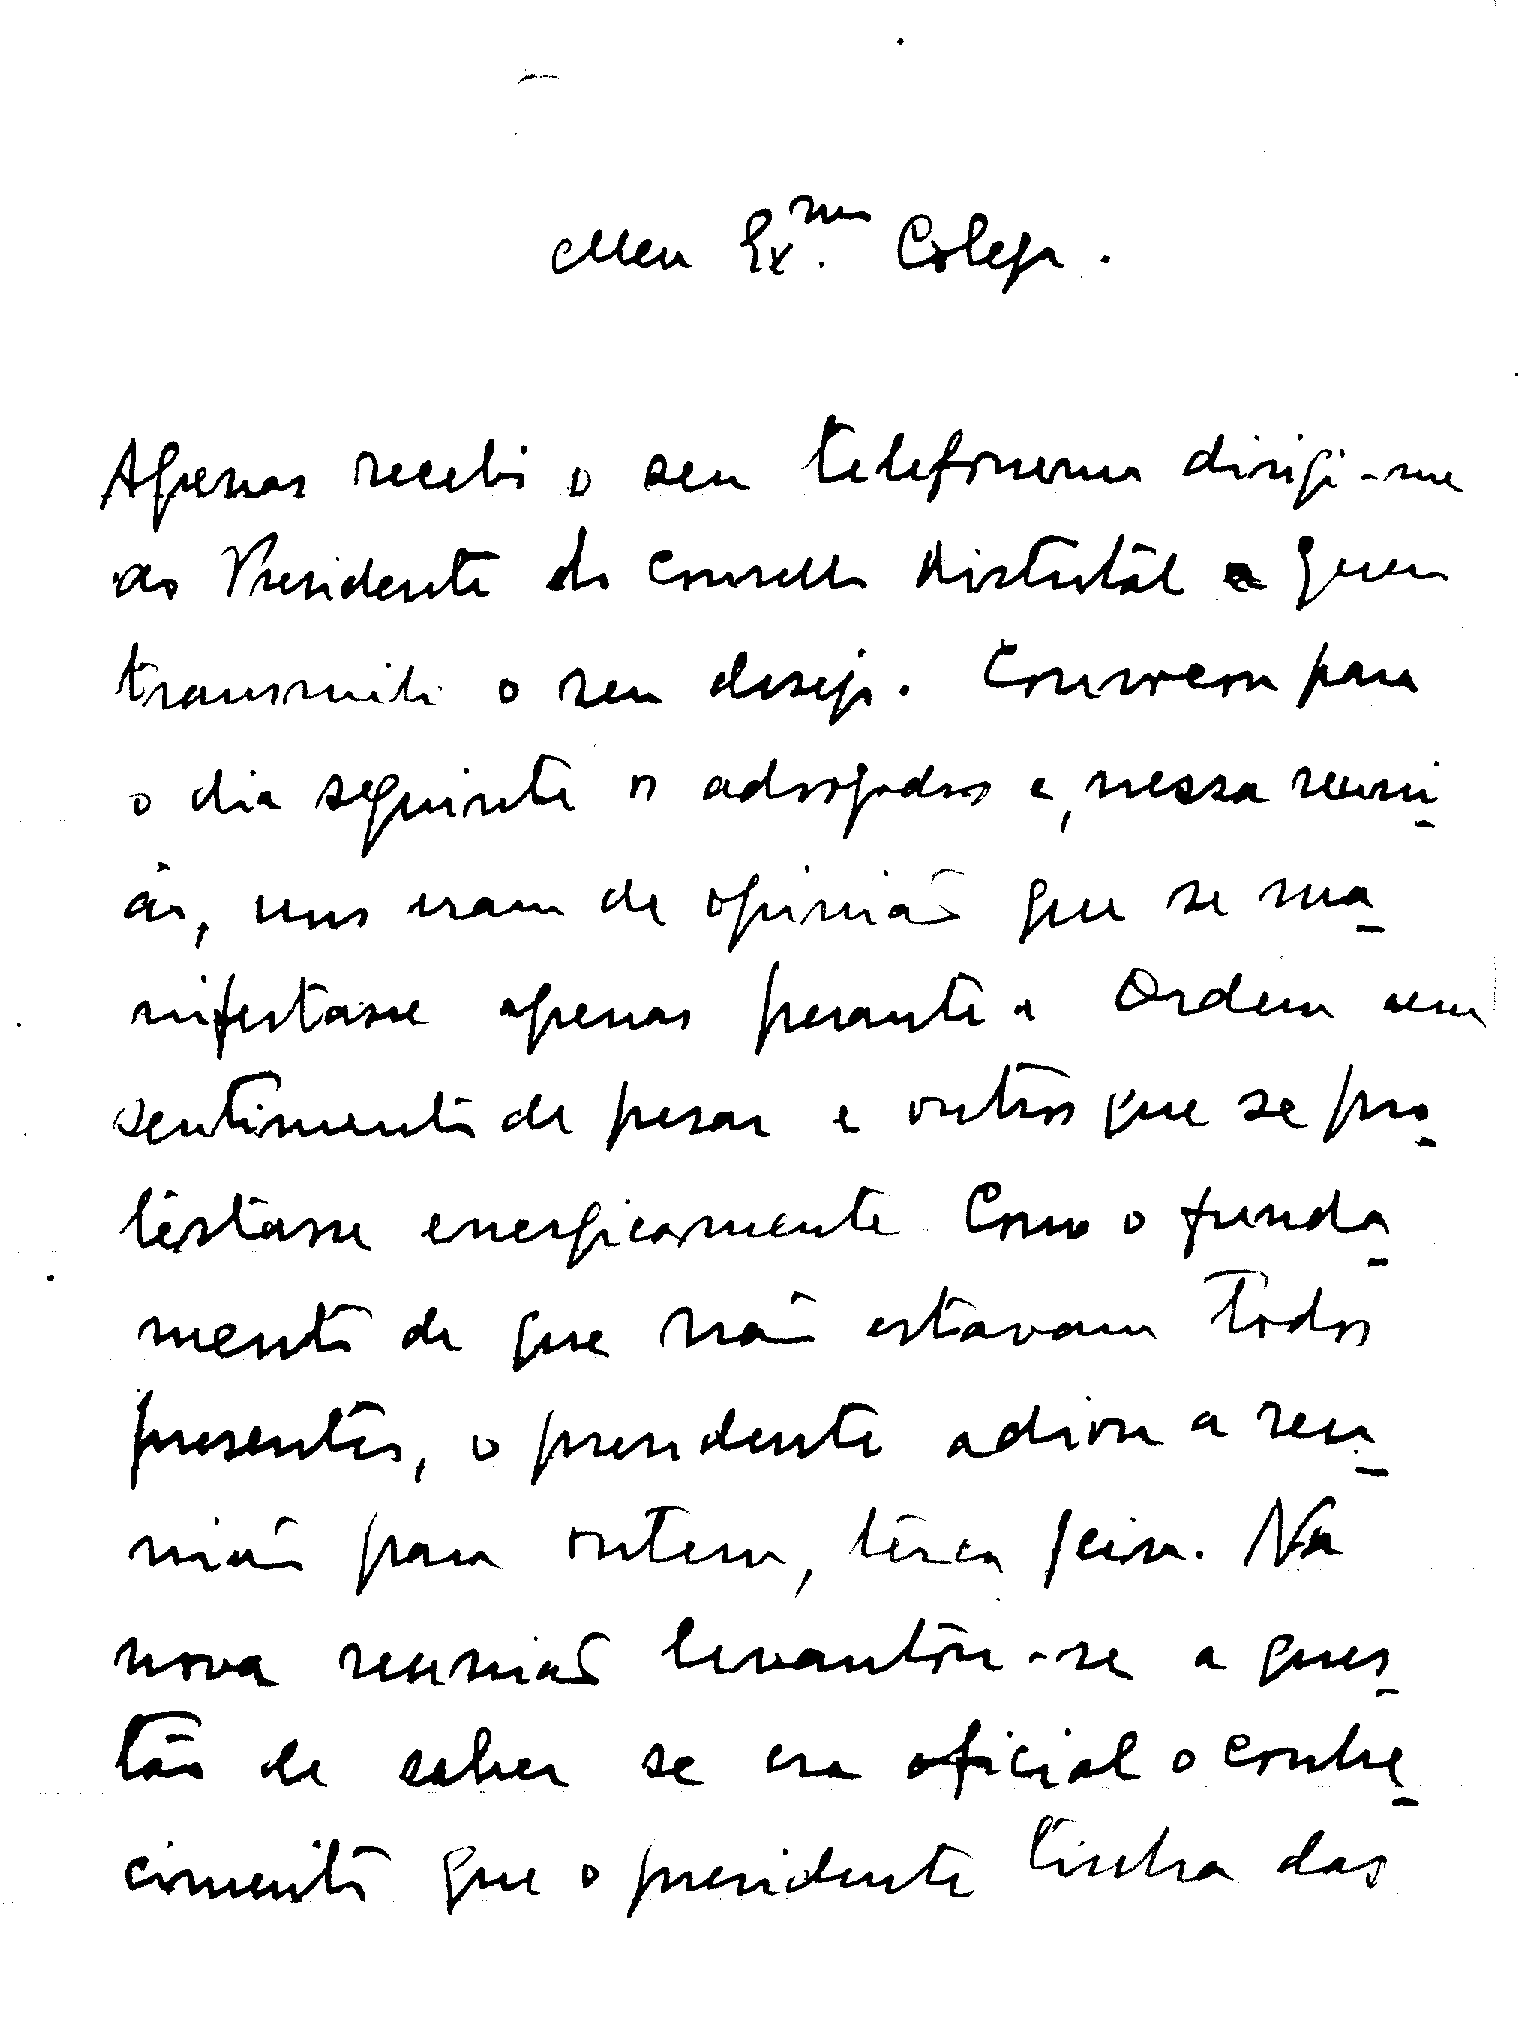 Meu Ex.mo Colega.
Apenas recebi o seu telefonema dirigi-me
ao Presidente do Conselho Distritál a quem
transmiti o seu desejo. Convocou para
o dia seguinte os advogados e, nessa reuni
ão, uns eram de opinião que se ma
nifestasse apenas perante a Ordem
sentimento de pesar e outros que se pro
testasse energicamente. Como o funda
mento de que não estavam todos
presentes, o presidente adiou a reu
nião para ontem, terça feira. Na
nova reunião levantou-se a ques
tão de saber se era oficial o conhe
cimento que o presidente tinha das